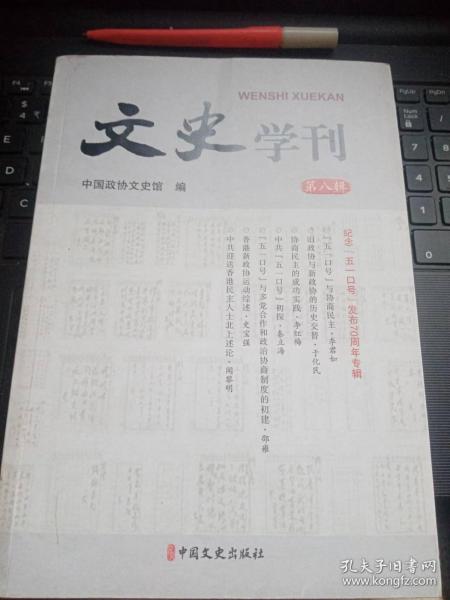 WENSHI XUEKAN
文史学刊
第八辑
中国政协文史馆 编
纪念「五一口号」发布70周年专辑
「五一口号」与协商民主·李君如
旧政协与新政协的历史交替·于化民
协商民主的成功实践·李红梅
中共「五一口号」初探·秦立海
「五一口号」与多党合作和政治协商制度的初建·邵雍
香港新政协运动综述·史宝强
中共迎送香港民主人士北上述论·闻黎明
中国文史出版社
孔夫子旧书网
www.kongfz.com